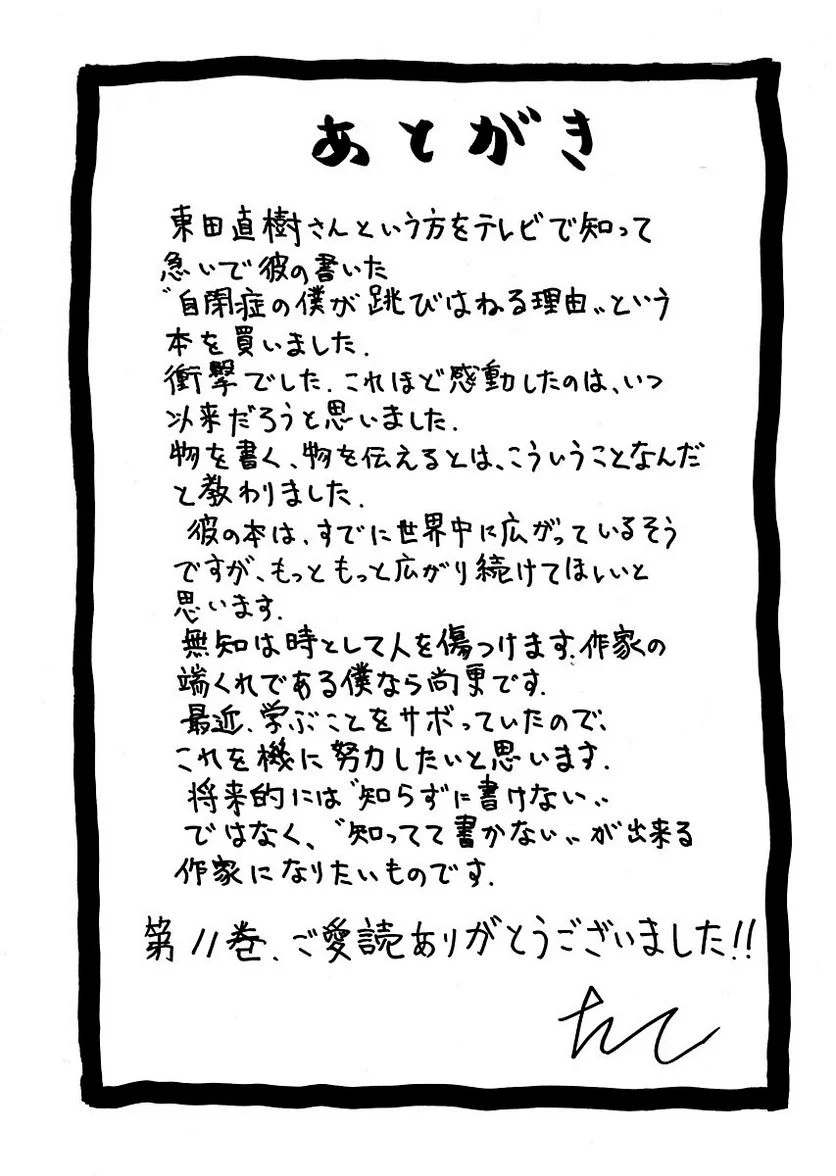 あとがき
東田直樹さんという方をテレビで知って
急いで彼の書いた
〝自閉症の僕が跳びはねる理由〟という
本を買いました.
衝撃でした.これほど感動したのは、いつ
以来だろうと思いました.
物を書く、物を伝えるとは、こういうことなんだ
と教わりました.
彼の本は、すでに世界中に広がっているそう
ですが、もっともっと広がり続けてほしいと
思います.
無知は時として人を傷つけます.作家の
端くれである僕なら尚更です.
最近、学ぶことをサボっていたので、
これを機に努力したいと思います.
将来的には〝知らずに書けない〟
ではなく、〝知ってて書かない〟が出来る
作家になりたいものです.
第11巻、ご愛読ありがとうございました!!